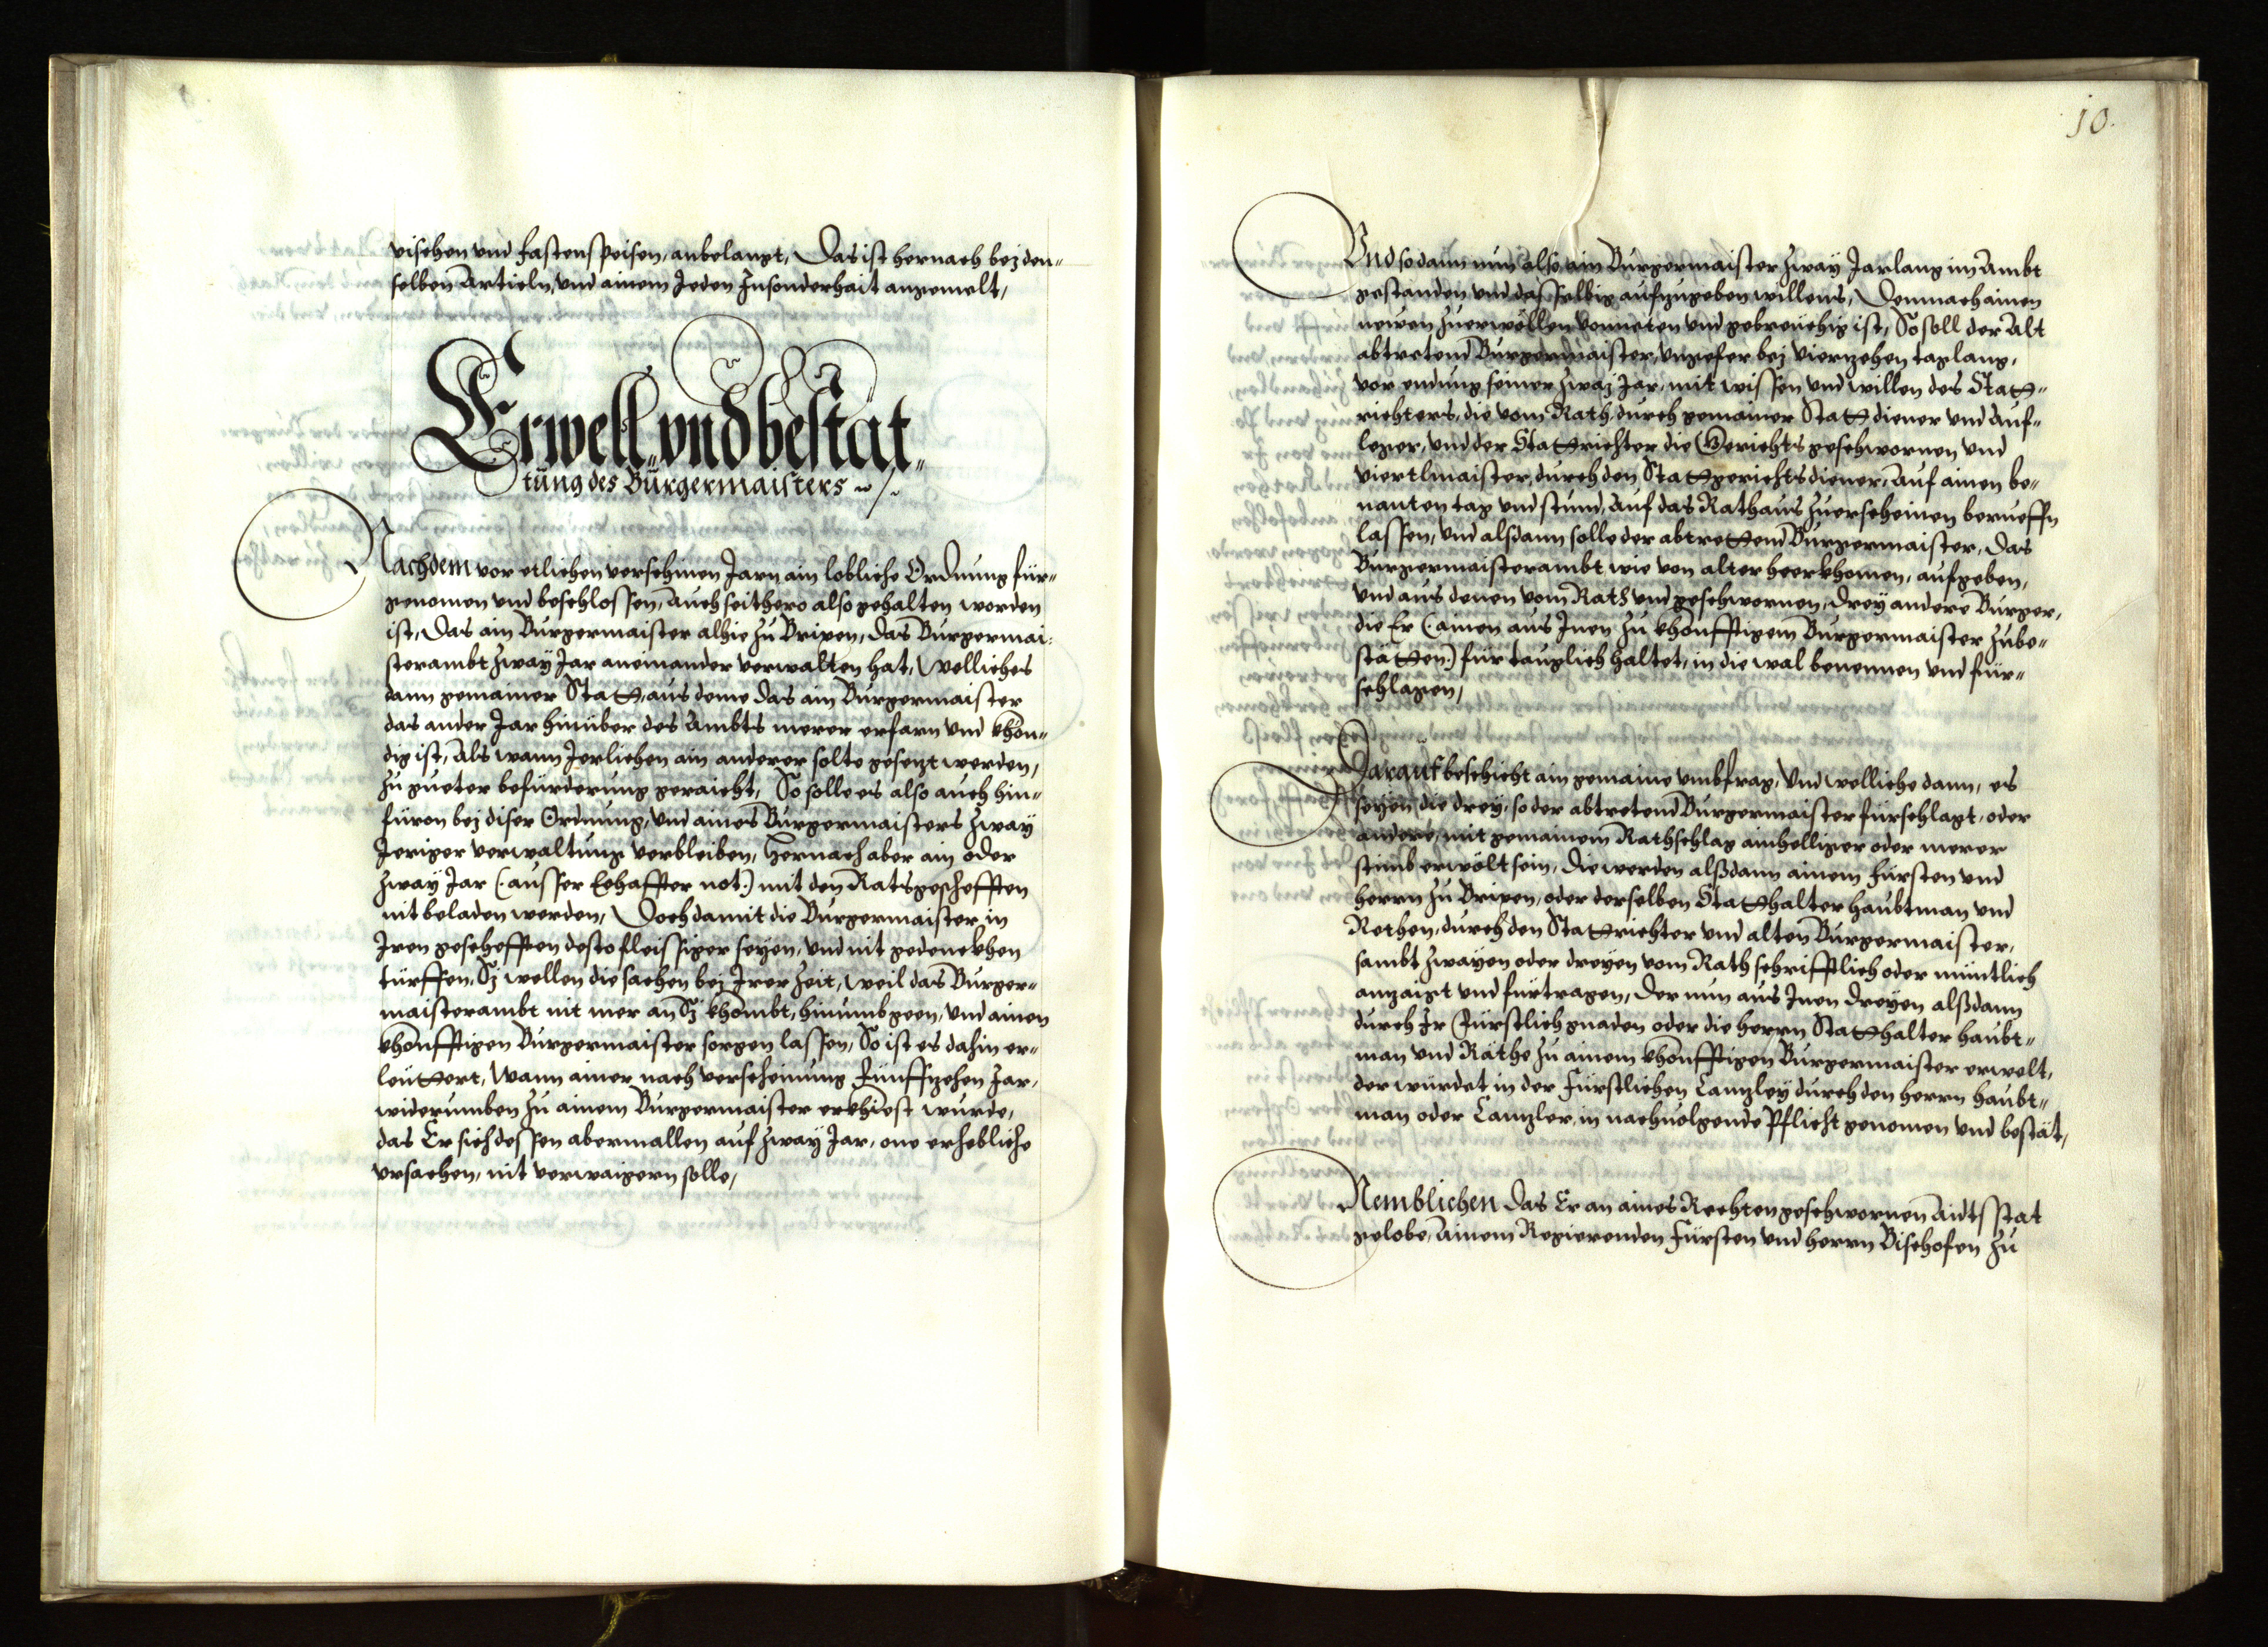 vischen und Fastenspeisen, anbelangt, Das ist hernach bej den„
selben Articln, und ainem Jeden Insonderhait angemelt,
Erwell„ vnd bestät„
tung des Bürgermaisters
Nachdem vor etlichen verschinen Jarn ain lobliche Ordnung für„
genomen und beschlossen, Auch seithero also gehalten worden
ist, Das ain Burgermaister alhie zu Brixen, das Burgermai„
sterambt zway Jar aneinander verwalten hat, Welliches
dann gemainer Statt, aus deme das ain Burgermaister
das ander Jar hinüber des Ambts merer erfarn und khön„
dig ist, Als wann Jerlichen ain anderer solte gesezt werden,
zu gueter befürderung geraicht, So solle es also auch hin„
füron bej diser Ordnung, Und aines Burgermaisters zway
Jeriger verwaltung verbleiben, Hernach aber ain oder
zway Jar (: ausser Eehaffter not :) mit den Ratsgescheffen
nit beladen werden, Doch damit die Burgermaister, in
Iren geschefften desto fleissiger seyen, und nit gedenckhen
türffen, Sj wellen die sachen bej Irer Zeit, weil das Burger„
maisterambt nit mer an Sj khombt, hinumbgeen, und ainen
khönfftigen Burgermaister sorgen lassen, So ist es dahin er„
leüttert, Wann ainer nach verscheinung Fünffzehen Jar,
widerumben zu ainem Burgermaister erkhiest wurde,
das Er sich dessen abermallen auf zway Jar, one erhebliche
ursachen, nit verwaigern solle,
10.
Und so dann nun also ain Burgermaister zway Jar lang im Ambt
gestanden und dasselbig aufzugeben willens, Demnach ainen
newen zuerwöllen vonneten und gebreüchig ist, So soll der Alt
abtretend Burgermaister, ungefer bej viertzehen tag lang,
vor endung seiner zwaj Jar, mit wissen und willen des Statt„
richters, die vom Rath, durch gemainer Statt diener und Auf„
leger, und der Stattrichter die Gerichtsgeschwornen und
viertlmaister, durch den Stattgerichtsdiener, Auf ainen be„
nanten tag und stund, Auf das Rathaus zuerscheinen berueffn
lassen, Und alsdann solle der abtrettend Burgermaister, das
Burgermaisterambt wie von alter heerkhomen, aufgeben,
Und aus denen vom Rath und geschwornen, drey andere Burger,
die Er (: ainen aus Inen zu khönfftigem Burgermaister zube„
stätten :) für tauglich haltet, in die wal benennen und für„
schlagen,
Darauf beschicht ain gemaine umbfrag, Und welliche dann, es
seyen die drey, so der abtretend Burgermaister fürschlagt, oder
andere, mit gemainem Rathschlag ainhelliger oder merer
stimb erwölt sein, Die werden alßdann ainem Fürsten und
herrn zu Brixen, oder derselben Statthalter haubtman und
Rethen, durch den Stattrichter und alten Burgermaister,
sambt zwayen oder dreyen vom Rath schrifftlich oder müntlich
angzaigt und fürtragen, Der nun aus Inen dreyen alßdann
durch Ir Fürstlich gnaden oder die herrn Statthalter haubt„
man und Räthe zu ainem khönfftigen Burgermaister erwelt,
der würdet in der Fürstlichen Canzley durch den herrn haubt„
man oder Canzler, in nachuolgende Pflicht genomen und bestät,
Nemblichen Das Er an aines Rechten geschwornen Aidts stat
gelobe, Ainem Regierenden Fürsten und herrn Bischofen zu